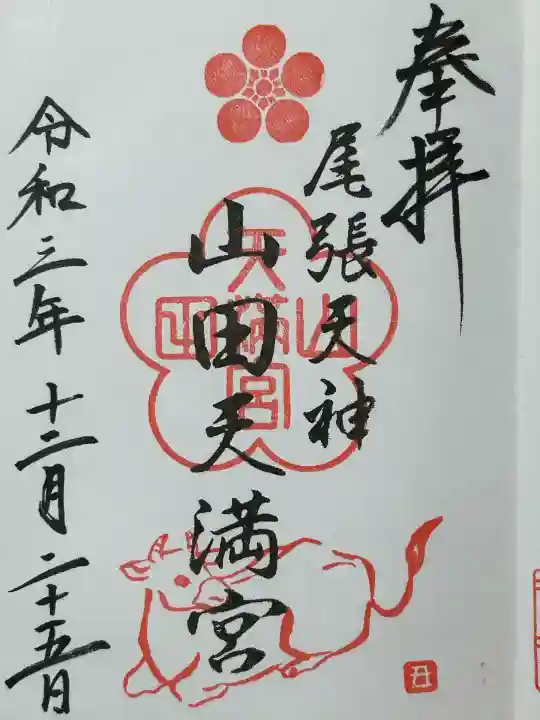 奉拝
尾張天神
山田天満宮
山田
天満宮
令和三年十二月二十五日
丑